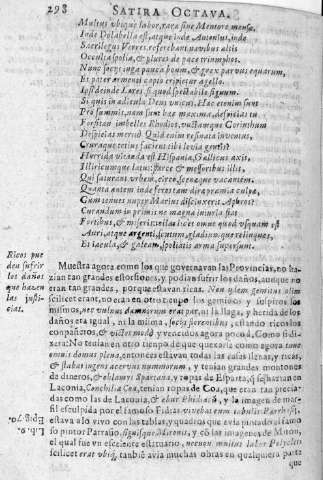 298 SATIRA OCTAVA.
Multus ubique labor, rara sine Mentore mensa.
Inde Dolabella est, atque inde Antonius, inde
Sacrilegus Verres, referebant navibus altis
Occulta spolia, & plures de pace triumphos.
Nunc socijs iuga pauca boum, & grex parvus equarum,
Et pater armenti capto eripietur agello.
Ipsi deinde Lares, si quod spectabile signum.
Si quis in adicula Deus unicus. Hac etenim sunt
Pro summis, nam sunt hac maxima, despicias tu
Forsitan imbelles Rhodios, unctamque Corinthum
Despicias merito? Quid resinata inventus,
Cruraque totius facient tibi levia gentis?
Horrida vitanda est Hispania, Gallicus axis,
Illiricumque latus: parce & messoribus illis,
Qui saturant urbem, circo, scenaque vacantem.
Quanta autem inde feres tam dira pramia culpa,
Cum tenues nuper Marius discinxerit Aphros?
Curandum in primis ne magna iniuria fiat
Fortibus, & miseris: tollas licet omne quod usquam est
Auri, atque argenti, scutum, gladiumque relinques,
Et iacula, & galeam, spoliatis arma supersunt.
Ricos
sufrir
los daños
que hazen
las justi-
cias.
Muestra agora como los que governavan las Provincias, no ha-
zian tan grandes estorsiones, y podian sufrir los daños, aunque no
eran tan grandes, porque estavan ricas. Non idem gemitus olim
scilicet erant, no eran en otro tiempo los gemidos y suspiros los
mismos, nec vulnus damnorum erat par, ni la llaga, y herida de los
daños era igual, ni la misma, socijs florentibus estando ricos los
compañeros, & modò y vencidos agora poco à. Como si di-
xera: No tenian en otro tiempo de que quexarse como agora tanto
omnis domus plena, entonces estavan todas las casas llenas, y ricas,
& stabat ingens acervus nummorum, y tenian grandes montones
de dineros, & chlamys Spartana, y ropas de Esparta,
Laconia, Conchilia Coa, tenian ropas de Coa, que eran tan precia-
das como las de Laconia, & ebur Phidiacũ, y la imagen de mar-
fil esculpida por el famoso Fidias vivebat cum tabulis Parrhasij,
estava a lo vivo con las tablas, y quadros que avia pintado el famo
so pintor Parrasio, signisque Mironis, y cõ las imagenes de Miron,
el qual fue un excelente estatuario, necnon multus labor Polycleti
scilicet erat ubiq; tambiẽ avia muchas obras en qualquiera parte
que